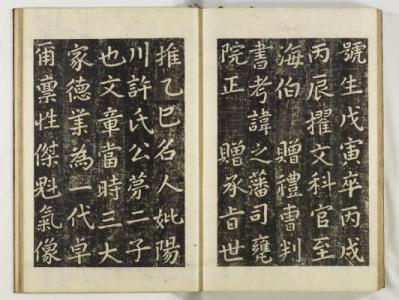 號生戊寅卒丙戌
丙辰擢文科官至
海伯 贈禮曹判
書考諱之藩司甕
院正 贈承旨世
推乙巳名人妣陽
川許氏公第二子
也文章當時三大
家德業為一代卓
爾稟性傑魁氣像